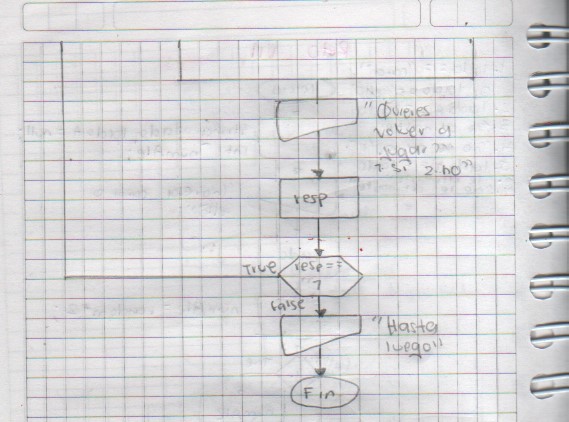 "Quieres
volver a
jugar??
1. si 2. no"
resp
True
resp ==
1
False
"Hasta
luego"
Fin